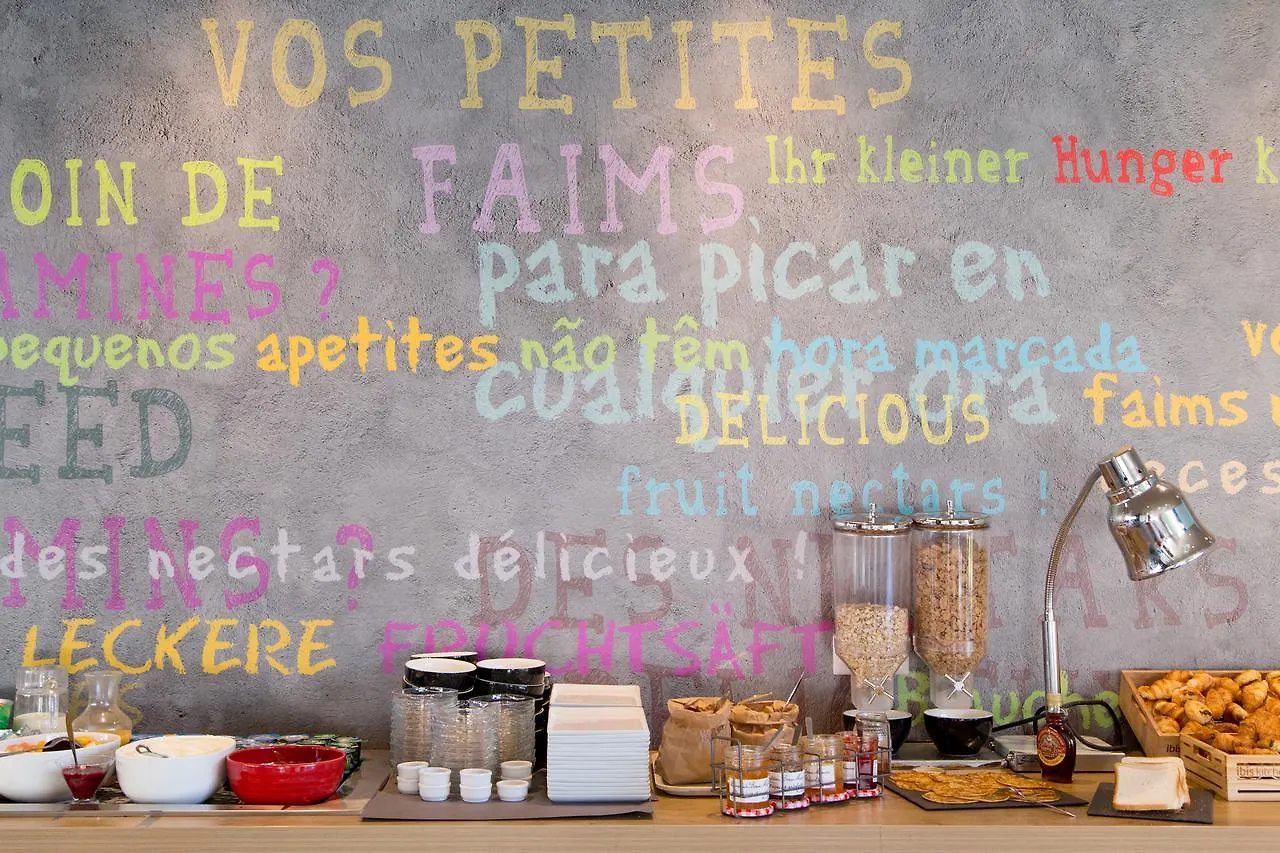 VOS PETITES
FAIMS
Ihr kleiner Hunger k
OIN DE
AMINES ?
para picar en
cualquier ora
pequenos apetites não têm hora marcada
EED
DELICIOUS
faims
fruit nectars !
eces
MINS ?
des nectars délicieux !
DES NECTARS
LECKERE
FRUCHTSÄFT
ibis kitchen